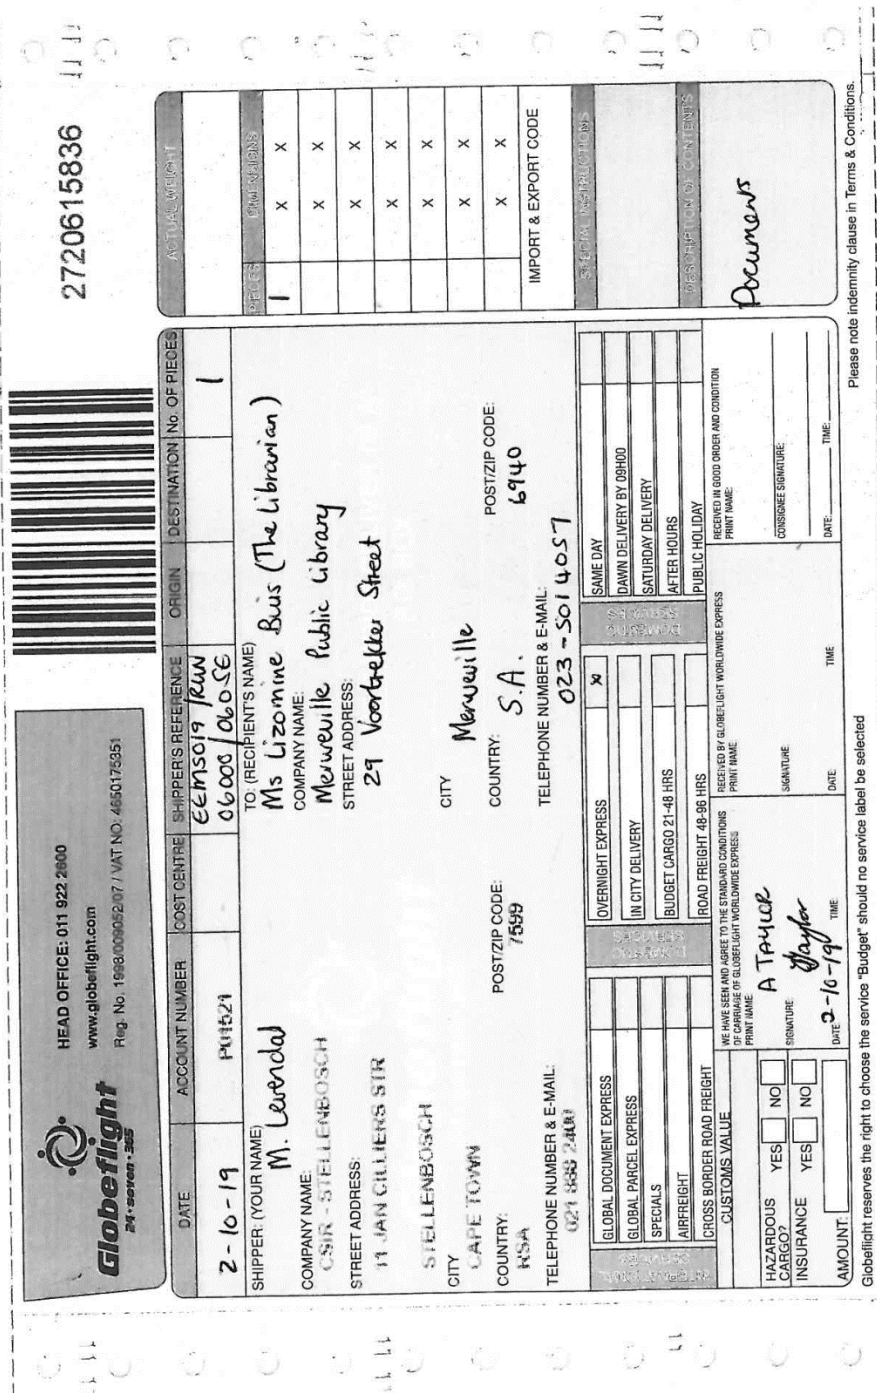 Globeflight
24·seven·365
HEAD OFFICE: 011 922 2600
www.globeflight.com
Reg. No. 1998/009052/07 / VAT NO: 4650175351
2720615836
DATE ACCOUNT NUMBER COST CENTRE SHIPPER'S REFERENCE ORIGIN DESTINATION No. OF PIECES
2-10-19 P01521 EEMS019 /RUN 1
06000/0605E
SHIPPER: (YOUR NAME)
M. Levendal
COMPANY NAME:
CSIR - STELLENBOSCH
STREET ADDRESS:
11 JAN CILLIERS STR
STELLENBOSCH
CITY
CAPE TOWN
POST/ZIP CODE:
7599
COUNTRY:
RSA
TELEPHONE NUMBER & E-MAIL:
021 888 2400
TO: (RECIPIENT'S NAME)
Ms Lizomine Buis (The Librarian)
COMPANY NAME:
Merweville Public Library
STREET ADDRESS:
29 Voortrekker Street
CITY
Merweville
POST/ZIP CODE:
6940
COUNTRY:
S.A.
TELEPHONE NUMBER & E-MAIL:
023-501 4057
INTERNATIONAL SERVICES
GLOBAL DOCUMENT EXPRESS
GLOBAL PARCEL EXPRESS
SPECIALS
AIRFREIGHT
CROSS BORDER ROAD FREIGHT
DOMESTIC SERVICES
OVERNIGHT EXPRESS X
IN CITY DELIVERY
BUDGET CARGO 21-48 HRS
ROAD FREIGHT 48-96 HRS
DOMESTIC SERVICES
SAME DAY
DAWN DELIVERY BY 09H00
SATURDAY DELIVERY
AFTER HOURS
PUBLIC HOLIDAY
CUSTOMS VALUE
HAZARDOUS CARGO? YES NO
INSURANCE YES NO
AMOUNT:
WE HAVE SEEN AND AGREE TO THE STANDARD CONDITIONS
OF CARRIAGE OF GLOBEFLIGHT WORLDWIDE EXPRESS
PRINT NAME:
A TAYLOR
SIGNATURE:
Taylor
DATE 2-10-19 TIME:
RECEIVED BY GLOBEFLIGHT WORLDWIDE EXPRESS
PRINT NAME:
SIGNATURE:
DATE: TIME
RECEIVED IN GOOD ORDER AND CONDITION
PRINT NAME:
CONSIGNEE SIGNATURE:
DATE: TIME:
ACTUAL WEIGHT
PIECES DIMENSIONS
1 X X
X X
X X
X X
X X
X X
X X
IMPORT & EXPORT CODE
SPECIAL INSTRUCTIONS
DESCRIPTION OF CONTENTS
Documents
Globeflight reserves the right to choose the service "Budget" should no service label be selected
Please note indemnity clause in Terms & Conditions.